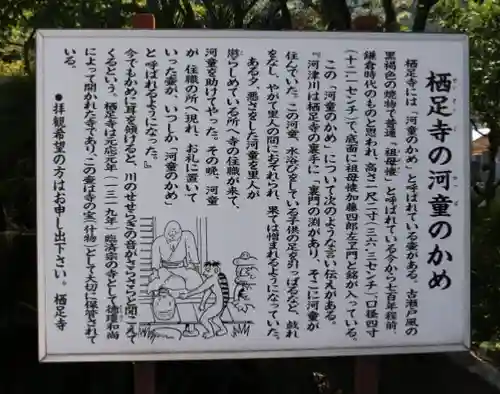 栖足寺の河童のかめ
栖足寺には「河童のかめ」と呼ばれている壷がある。古瀬戸風の
黒褐色の焼物で普通「祖母懐」と呼ばれている今から七百年程前、
鎌倉時代のものと思われ、高さ一尺二寸（三六・三センチ）口径四寸
（十二・一センチ）で、底面に祖母懐加藤四郎左ヱ門と銘が入っている。
この「河童のかめ」について次のような言い伝えがある。
『河津川は栖足寺の裏手に「裏門の淵」があり、そこに河童が
住んでいた。この河童、水浴びをしている子供の足を引っぱるなど、戯れ
をなし、やがて里人の間におそれられ、果ては憎まれるようになっていた。
ある夕、悪さをした河童を里人が
懲らしめている所へ寺の住職が来て、
河童を助けてやった。その晩、河童
が住職の所へ現れ、お礼に置いて
いった壷が、いつしか「河童のかめ」
と呼ばれるようになった。』
今でもかめに耳を傾けると、川のせせらぎの音がさらさらと聞こえて
くるという。栖足寺は元応元年（一三一九年）臨済宗の寺として徳瓊和尚
によって開かれた寺であり、この壷は寺の宝（什物）として大切に保管されて
いる。
●拝観希望の方はお申し出下さい。栖足寺